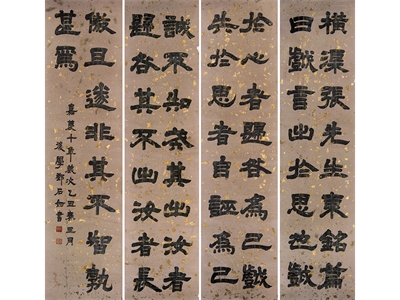 橫渠張先生東銘篇
曰戲言出於思也戲
於心者歸咎為己戲
失於思者自誣為己
誠不知戒其出汝者
歸咎其不出汝者長
傲且遂非其不智孰
甚焉
嘉慶十年歲次乙丑春三月
後學鄧石如書